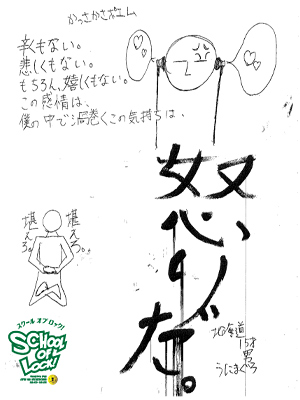 かっさかさポエム
辛くもない。
悲しくもない。
もちろん、嬉しくもない。
この感情は、
僕の中で渦巻くこの気持ちは、
怒りだ。
堪えろ。
堪えろ。
北海道
15才
男
うにまぐろ
スクール オブ ロック!
SCHOOL
OF
LOCK!